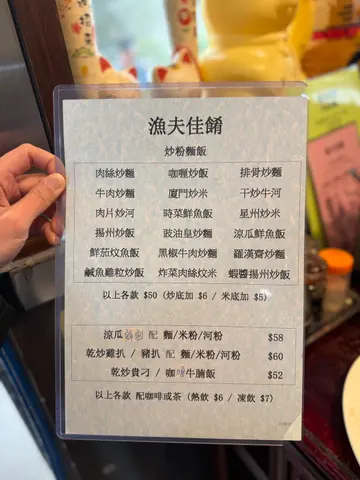 漁夫佳餚
炒粉麵飯
肉絲炒麵 咖喱炒飯 排骨炒麵
牛肉炒麵 廈門炒米 干炒牛河
肉片炒河 時菜鮮魚飯 星州炒米
揚州炒飯 豉油皇炒麵 涼瓜鮮魚飯
鮮茄炆魚飯 黑椒牛肉炒麵 羅漢齋炒麵
鹹魚雞粒炒飯 炸菜肉絲炆米 蝦醬揚州炒飯
以上各款 $50 (炒底加 $6 / 米底加 $5)
涼瓜 配 麵/米粉/河粉 $58
乾炒雞扒 / 豬扒 配 麵/米粉/河粉 $60
乾炒貴刁 / 咖 牛腩飯 $52
以上各款 配咖啡或茶 (熱飲 $6 / 凍飲 $7)